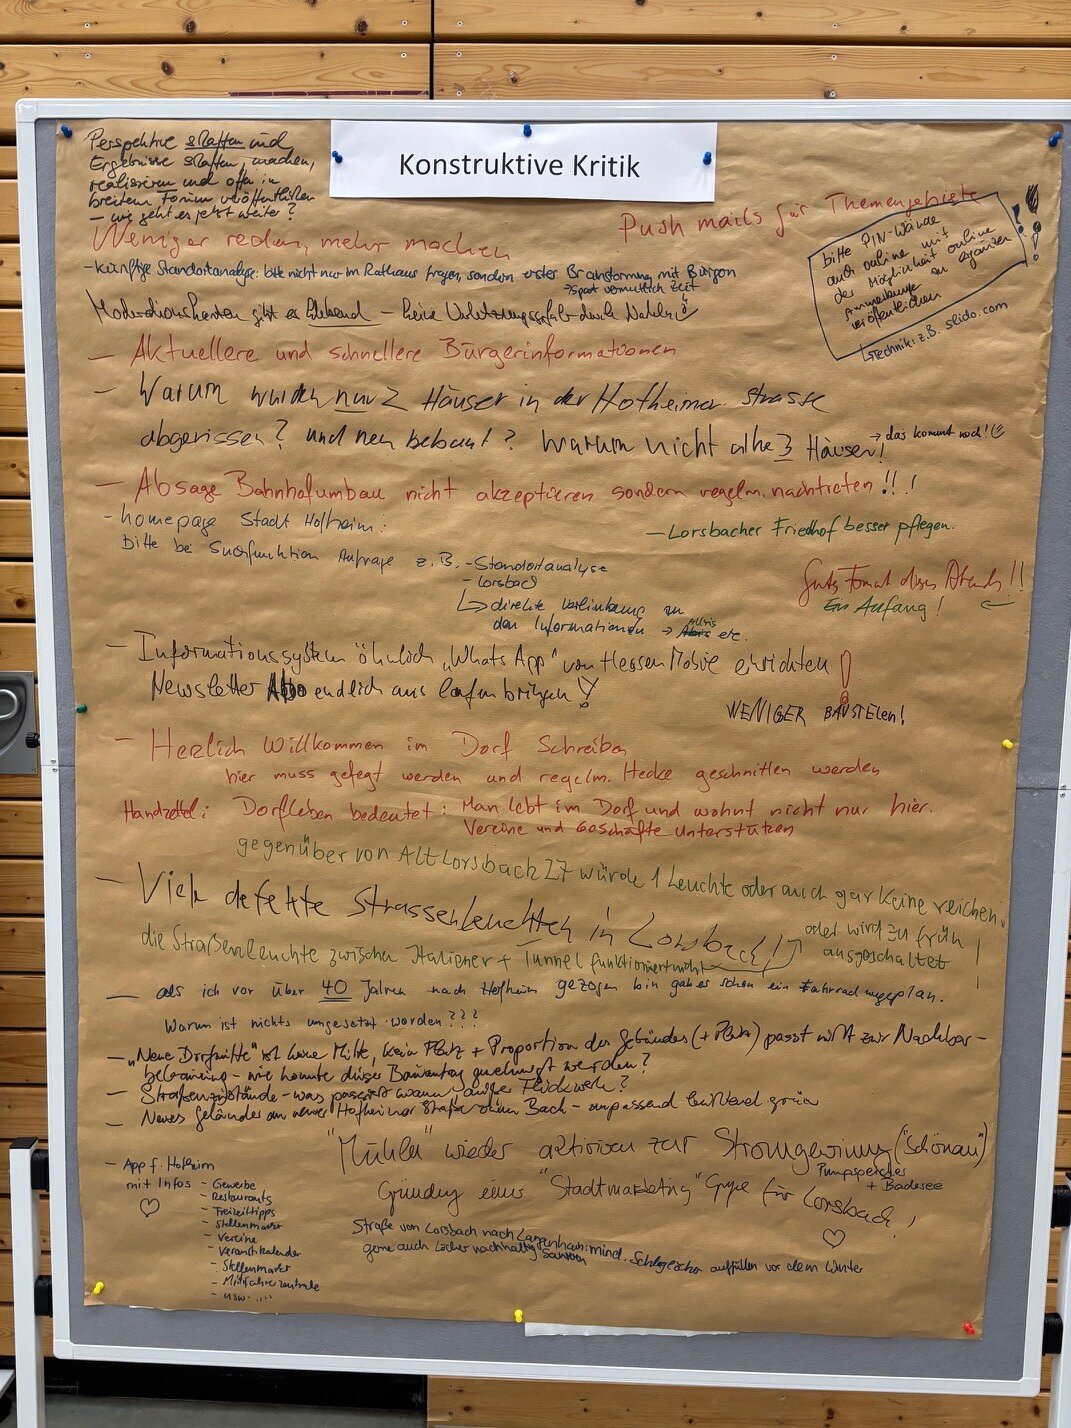 Konstruktive Kritik
Perspektive schaffen und
Ergebnisse schaffen, machen,
realisieren und offen in
breitem Forum veröffentlichen
– wie geht es jetzt weiter?
Push mails für Themengebiete
Weniger reden, mehr machen
bitte PIN-Wände
auch online mit
der Möglichkeit online
Anmerkungen zu ergänzen
veröffentlichen !!!
↳ Technik: z.B. slido.com
- künftige Standortanalyse: bitte nicht nur im Rathaus fragen, sondern erstes Brainstorming mit Bürgern
→ spart vermutlich Zeit
Moderationskarten gibt es klebend – keine Verletzungsgefahr durch Nadeln!
– Aktuellere und schnellere Bürgerinformationen
– Warum wurden nur 2 Häuser in der Hofheimer Strasse
abgerissen? und neu bebaut? Warum nicht alle 3 Häuser!
→ das kommt noch! ☺
– Absage Bahnhofumbau nicht akzeptieren sondern regelm. nachtreten!!!
- homepage Stadt Hofheim:
Bitte bei Suchfunktion Anfrage z.B. - Standortanalyse
- Lorsbach
↳ direkte Verlinkung zu
den Informationen → allris etc.
– Lorsbacher Friedhof besser pflegen.
Gutes Format dieses Abends!!
Ein Anfang! ←
– Informationssystem ähnlich „WhatsApp" von Hessen Mobil einrichten!
Newsletter Abo endlich ans laufen bringen!
WENIGER BAUSTELEN!
– Herzlich Willkommen im Dorf Schreiben
hier muss gefegt werden und regelm. Hecke geschnitten werden
Handzettel: Dorfleben bedeutet: Man lebt im Dorf und wohnt nicht nur hier.
Vereine und Geschäfte unterstützen
gegenüber von Alt Lorsbach 27 würde 1 Leuchte oder auch gar keine reichen.
– Viele defekte Strassenleuchten in Lorsbach!
oder wird zu früh
ausgeschaltet!
die Straßenleuchte zwischen Italiener + Tunnel funktioniert nicht
– als ich vor über 40 Jahren nach Hofheim gezogen bin gab es schon ein Fahrradwegeplan.
Warum ist nichts umgesetzt worden???
– „Neue Dorfmitte" ist keine Mitte, kein Platz + Proportion des Gebäudes (+ Platz) passt nicht zur Nachbar-
bebauung – wie konnte dieser Bauantrag genehmigt werden?
– Straßenzustände – was passiert wann außer Flickwerk?
– Neues Geländer an neuer Hofheimer Straße über dem Bach – unpassend leuchtend grün
"Mühlen" wieder aktivieren zur Stromgewinnung ("Schönau")
Pumpspeicher
+ Badesee
Gründung einer "Stadtmarketing" Gruppe für Lorsbach!
♡
– App f. Hofheim
mit Infos
♡
- Gewerbe
- Restaurants
- Freizeittipps
- Stellenmarkt
- Vereine
- Veranst.kalender
- Stellenmarkt
- Mitfahrerzentrale
- usw.....
Straße von Lorsbach nach Langenhain: mind. Schlaglöcher auffüllen vor dem Winter
gerne auch Löcher nachhaltig sanieren